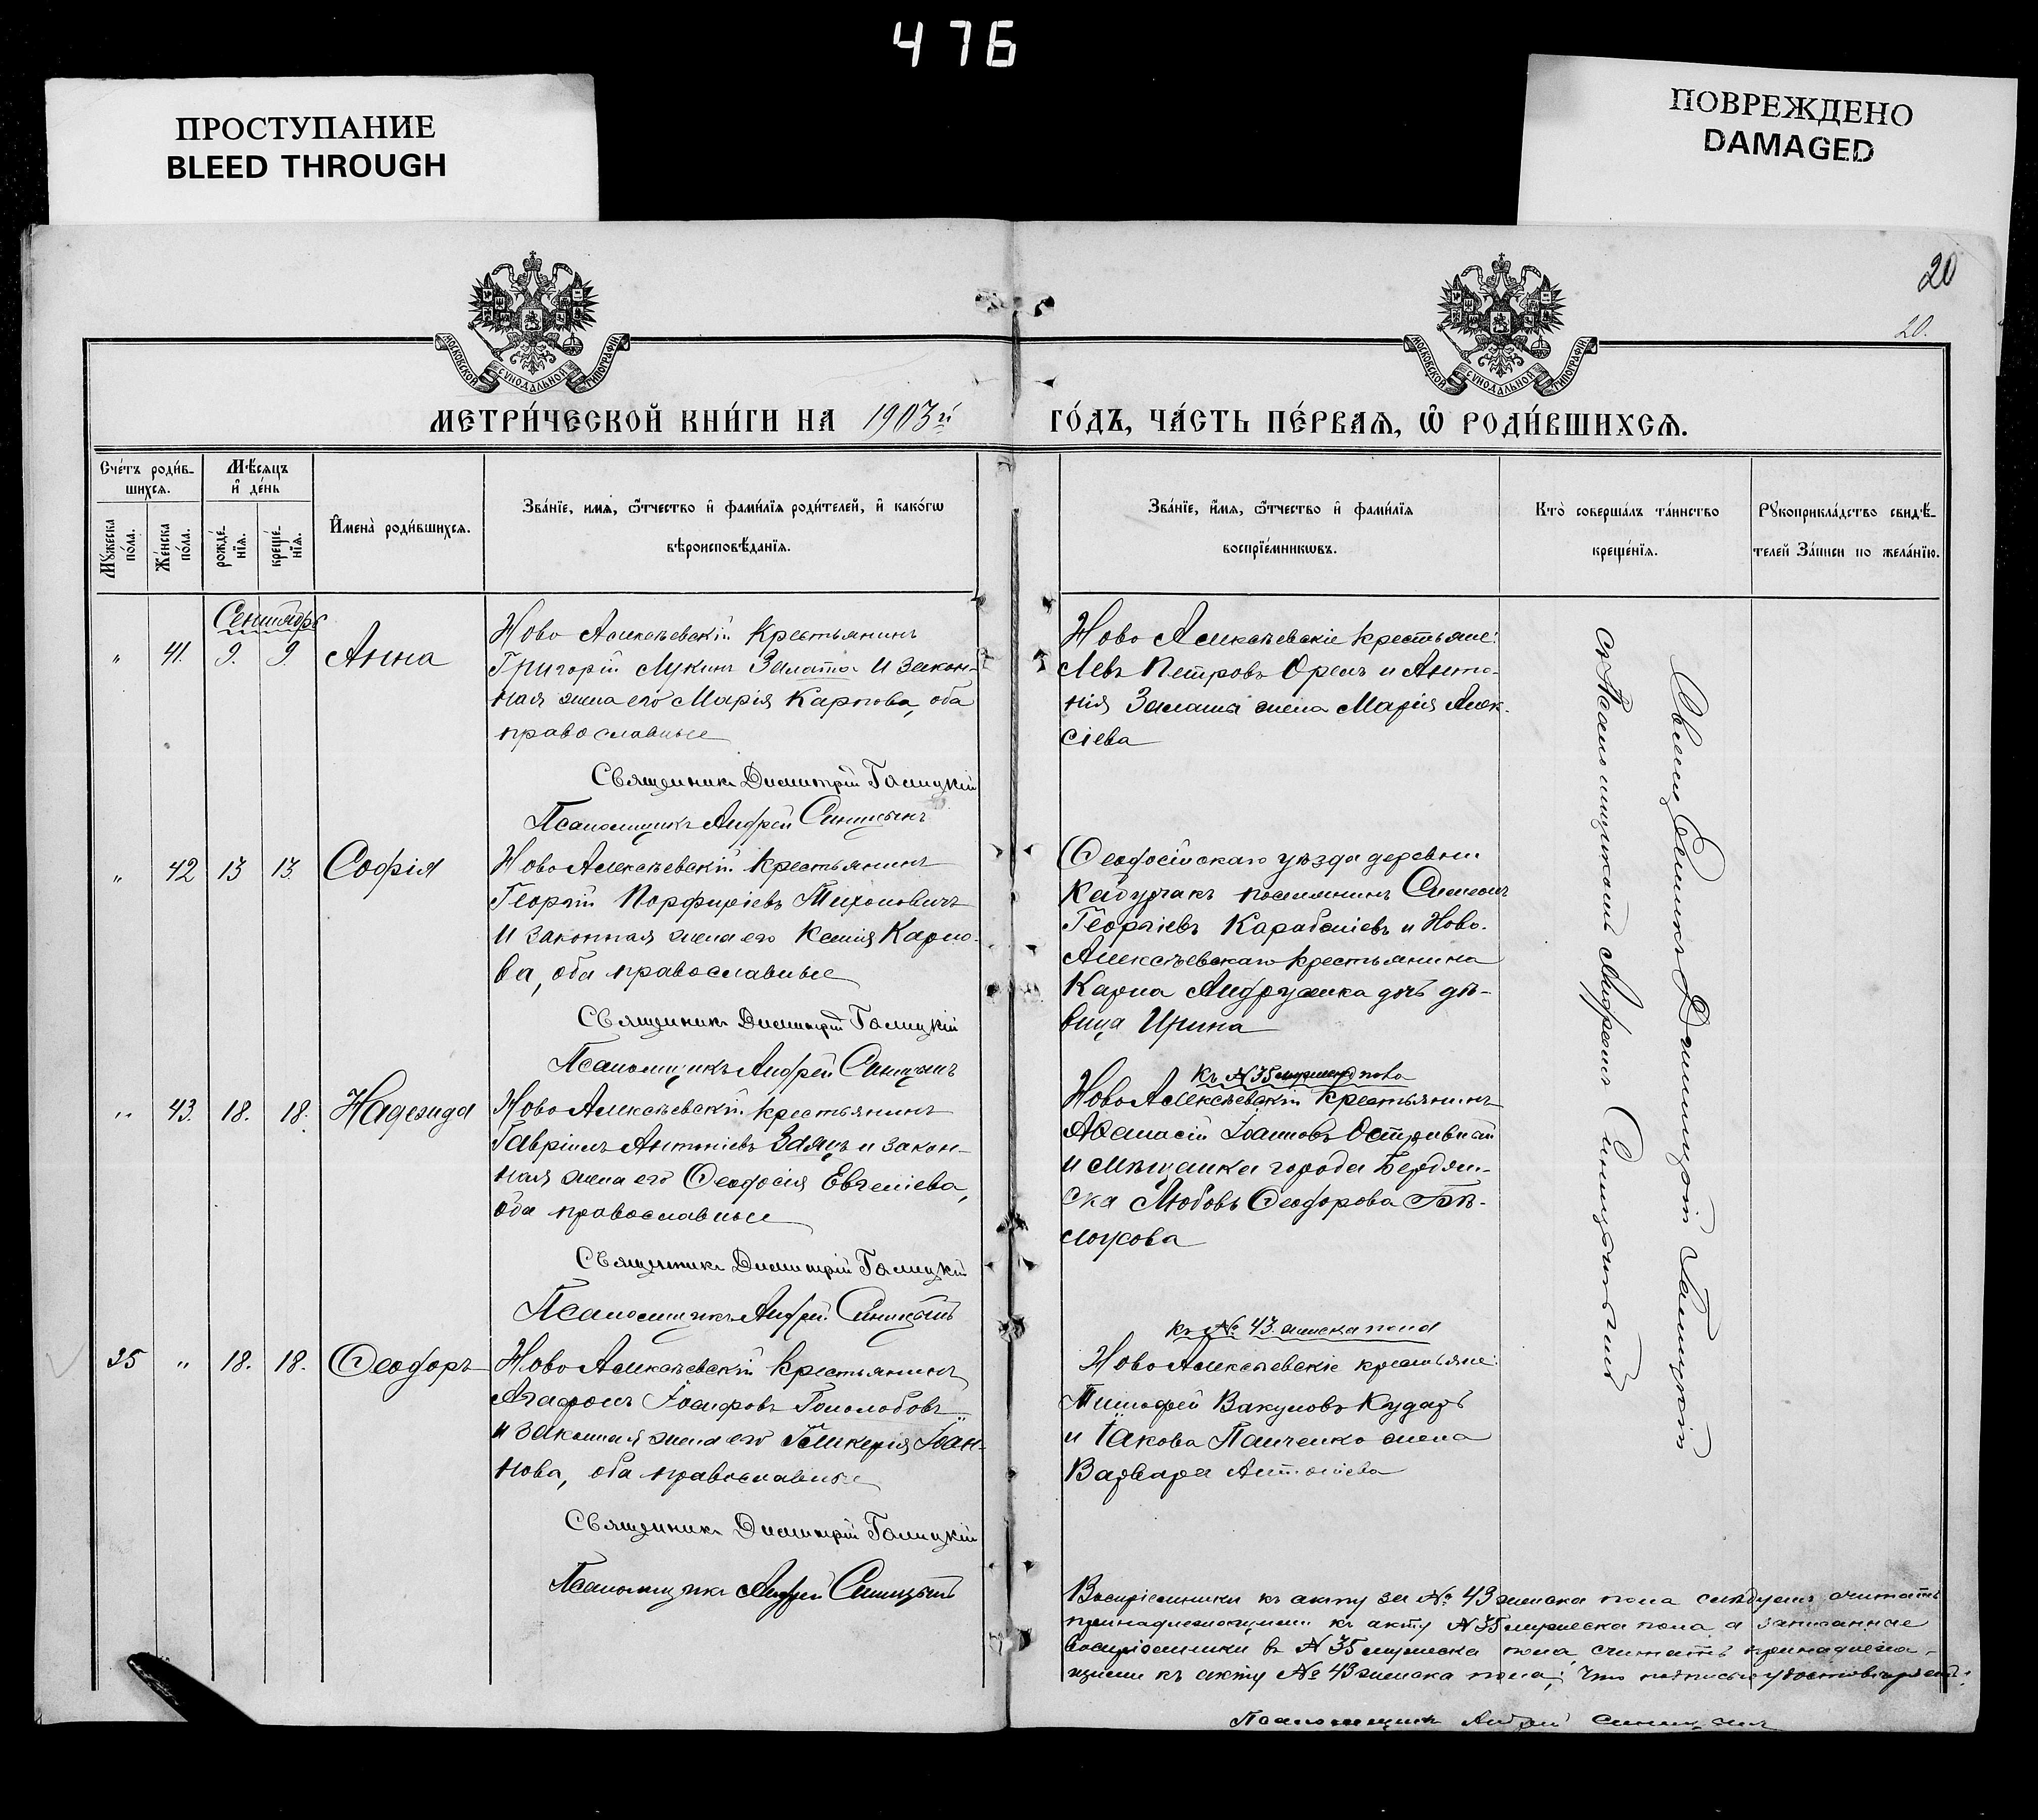 476
ПРОСТУПАНИЕ
BLEED THROUGH
ПОВРЕЖДЕНО
DAMAGED
20
20.
МОСКОВСКОЙ СУНОДАЛЬНОЙ ТИПОГРАФІИ
МОСКОВСКОЙ СУНОДАЛЬНОЙ ТИПОГРАФІИ
МЕТРИ́ЧЕСКОЙ КНИ́ГИ НА 1903й ГО́ДЪ, ЧА́СТЬ ПЕ́РВАѦ, Ѽ РОДИ́ВШИХСѦ.
Сче́тъ роди́в-
шихсѧ.
Мѣ́сѧцъ
и҆ де́нь
Мꙋ́жеска
по́ла.
Же́нска
по́ла.
рожде́-
нїѧ.
креще́-
нїѧ.
И҆мена̀ роди́вшихсѧ.
Зва́нїе, имѧ, ѻ҆́тчество и҆ фами́лїѧ роди́телей, и҆ како́гѡ
вѣроисповѣ́данїѧ.
Зва́нїе, и҆́мѧ, ѻ҆́тчество и҆ фами́лїѧ
воспрїе́мникѡвъ.
Кто̀ соверша́лъ та́инство
креще́нїѧ.
Рꙋкоприкла́дство свидѣ́-
телей За́писи по жела́нїю.
Сентябрь
" 41. 9. 9. Анна
Ново Алексѣевскій крестьянинъ
Григорій Лукинъ Залата и закон-
ная жена его Марія Карпова, оба
православные
Священникъ Димитрій Галицкій
Псаломщикъ Андрей Синицынъ
Ново Алексѣевскіе крестьяне:
Левъ Петровъ Орелъ и Анто-
нія Залата жена Марія Алек-
сіева
" 42 13 13. Софія
Ново Алексѣевскій крестьянинъ
Георгій Порфиріевъ Тихоновичъ
и законная жена его Ксенія Карпо-
ва, оба православные
Священникъ Димитрій Галицкій
Псаломщикъ Андрей Синицынъ
Ѳеодосійскаго уѣзда деревни
поселянинъ Симеонъ
Георгіевъ и Ново-
Алексѣевскаго крестьянина
Карпа Андрущенка дочь дѣ-
вица Ирина
" 43. 18. 18. Надежда
Ново Алексѣевскій крестьянинъ
Гавріилъ Антоніевъ Заяцъ и закон-
ная жена его Ѳеодосія Евгеніева,
оба православные
Священникъ Димитрій Галицкій
Псаломщикъ Андрей Синицынъ
Къ № 35 мужеска пола
Ново Алексѣевскій крестьянинъ
Аѳанасій Іоанновъ Остривной
и мѣщанка города Бердян-
ска Любовь Ѳеодорова Бѣ-
лоусова
35 " 18. 18. Ѳеодоръ
Ново Алексѣевскій крестьянинъ
Агафонъ Іосифовъ Гололобовъ
и законная жена его Гликерія Іоан-
нова, оба православные
Священникъ Димитрій Галицкій
Псаломщикъ Андрей Синицынъ
Къ № 43 женска пола
Ново Алексѣевскіе крестьяне:
Тимофей Вакуловъ Кударь
и Іакова Панченко жена
Варвара Антоніева
Священникъ Димитрій Галицкій
съ Псаломщикомъ Андреемъ Синицынымъ
Воспріемники къ акту за № 43 женска пола слѣдуетъ считать
принадлежащими къ акту № 35 мужеска пола а записанные
воспріемники въ № 35 мужеска пола считать принадлежа-
щими къ акту № 43 женска пола; что подписью удостовѣряемъ:
Псаломщикъ Андрей Синицынъ